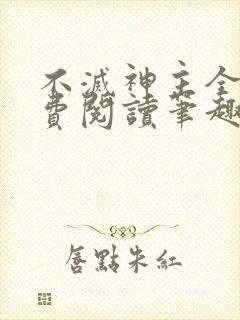 不滅神主全
費閱讀筆趣
唇點朱紅